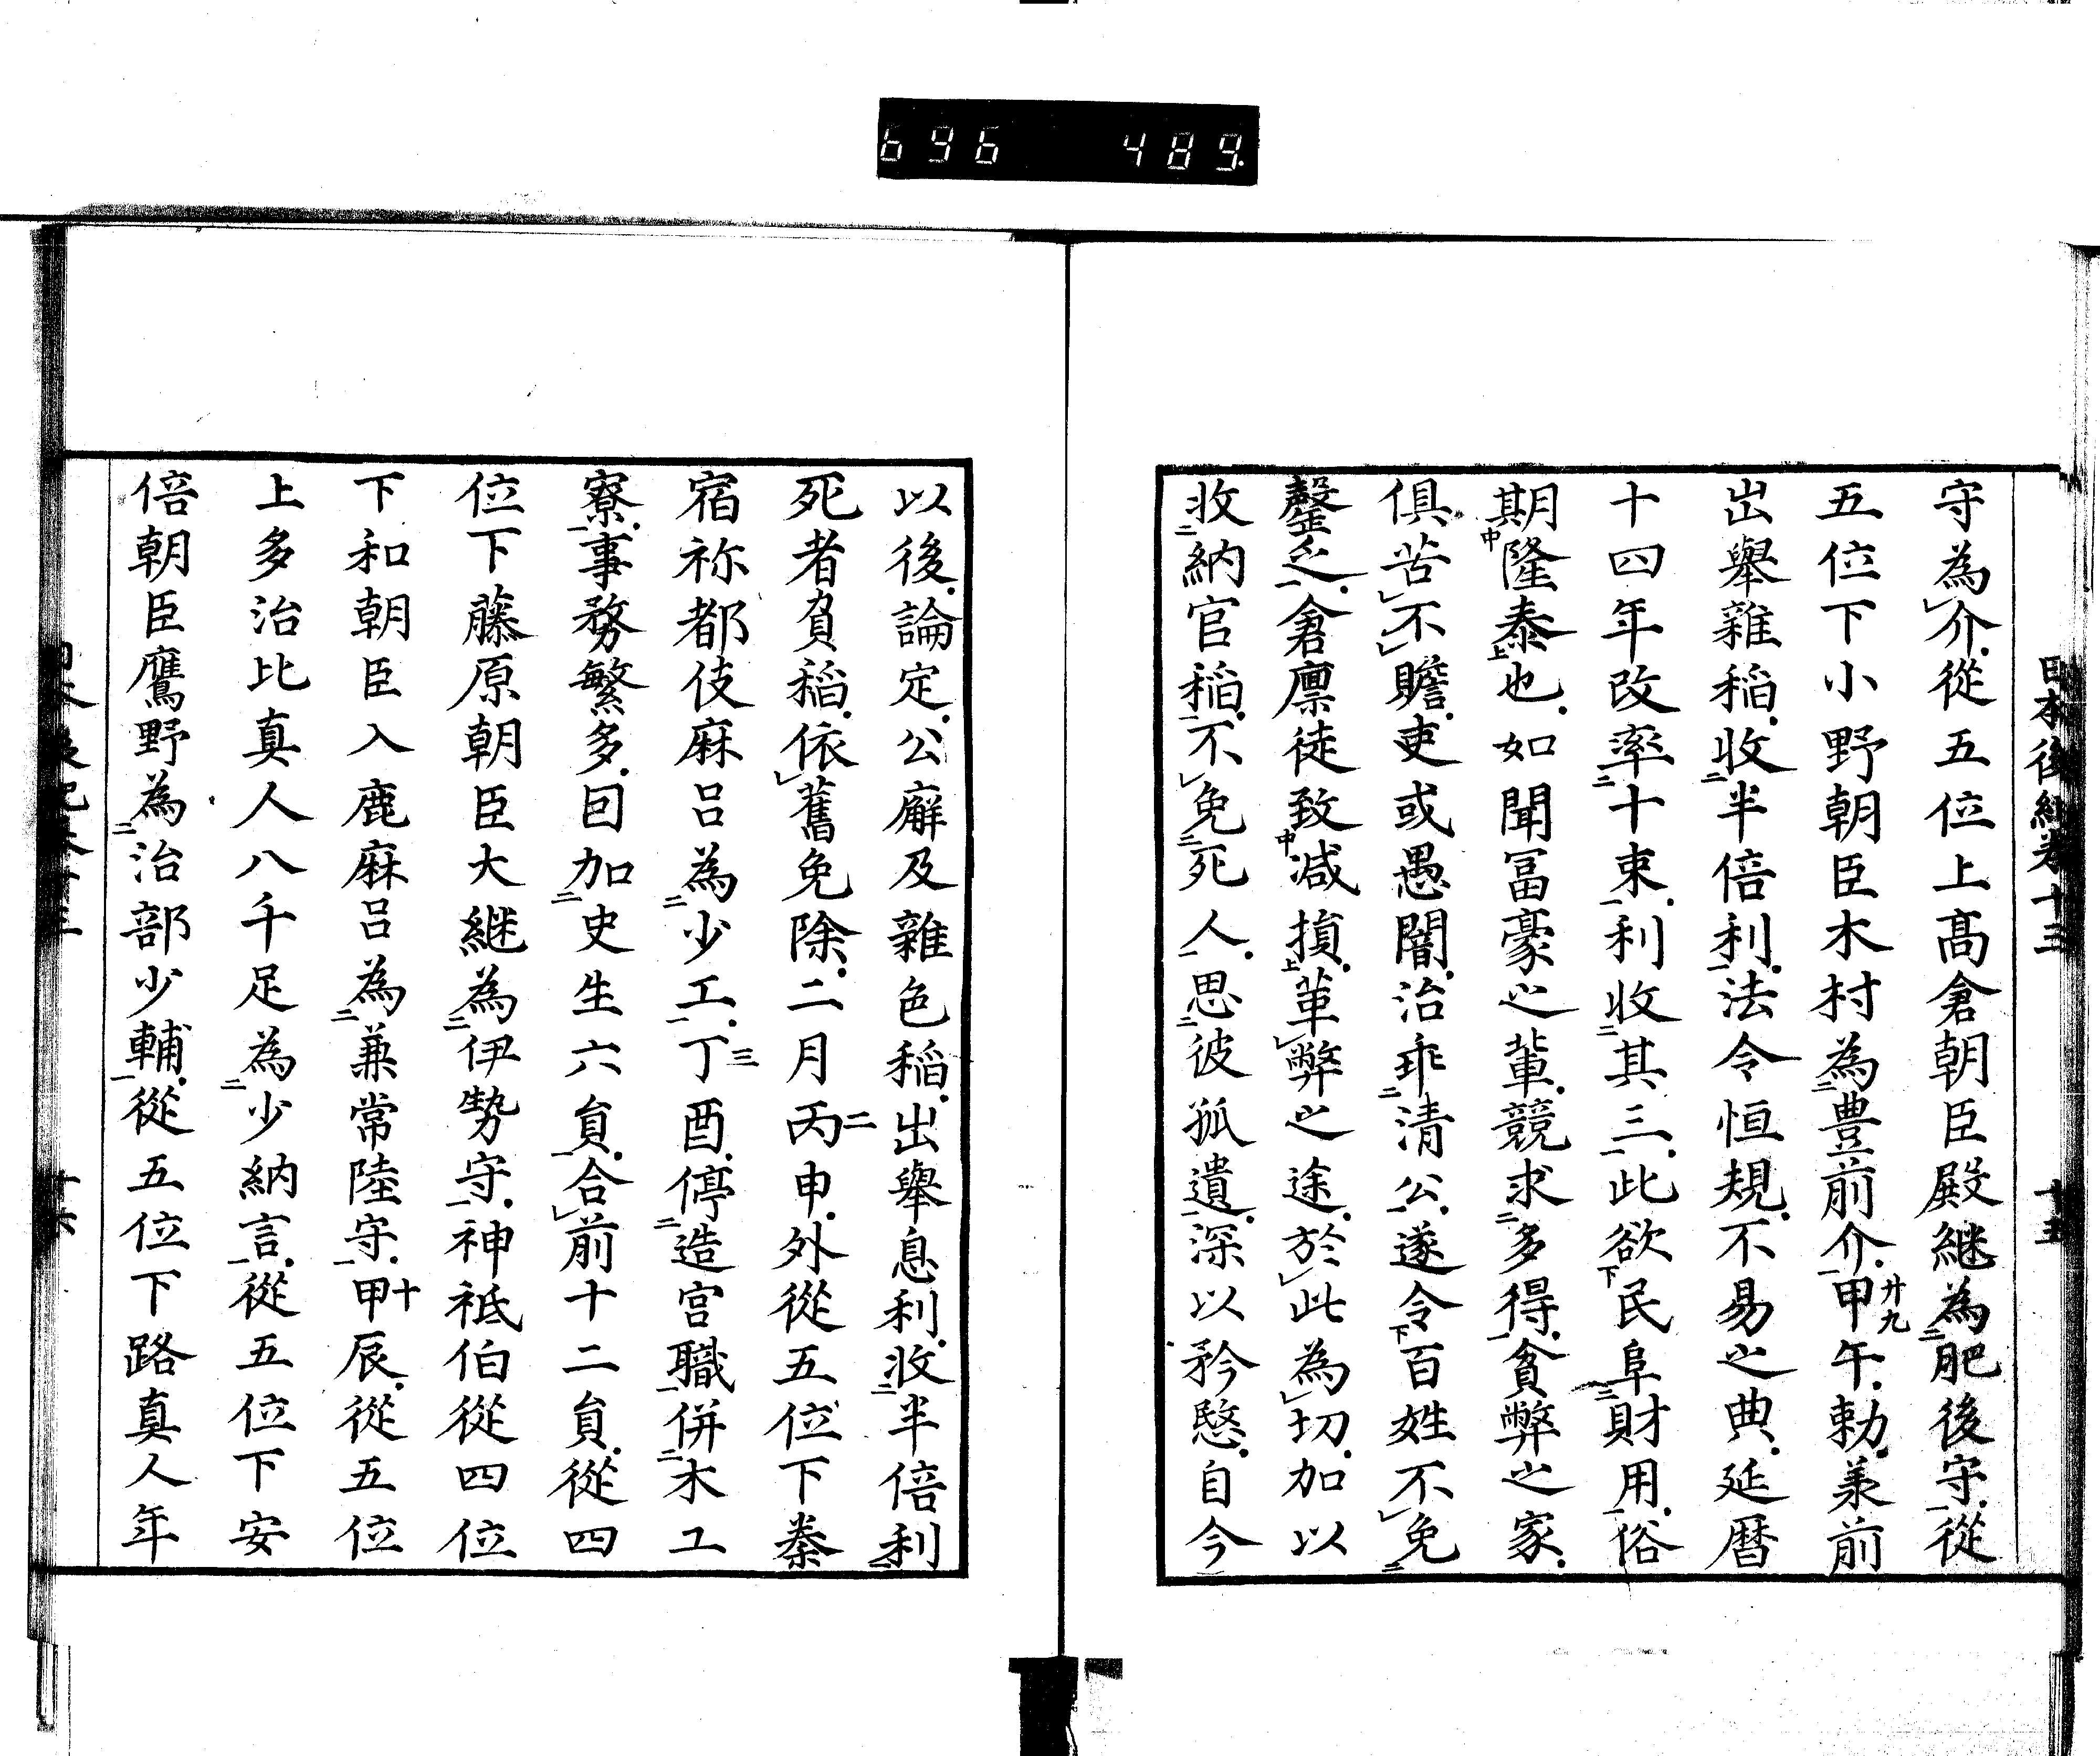 696 489
日本後紀卷十三 十五
守為介從五位上髙倉朝臣殿継為肥後守從
五位下小野朝臣木村為豊前介甲午勅羕前
廿九
出舉雜稲收半倍利法令恒規不易之典延暦
十四年改率十束利收其三此欲民阜財用俗
期隆泰也如聞冨豪之輩競求多得貪弊之家
俱苦不贍吏或愚闇治乖清公遂令百姓不免
罄乏倉廪徒致减損革弊之途於此為切加以
收納官稲不免死人思彼孤遺深以矜愍自今
以後論定公廨及雜色稲出舉息利收半倍利
死者負稲依舊免除二月丙申外從五位下秦
二
宿祢都伎麻呂為少工丁酉停造宮職併木工
三
寮事務繁多因加史生六負合前十二負從四
位下藤原朝臣大継為伊勢守神祇伯從四位
下和朝臣入鹿麻呂為兼常陸守甲辰從五位
十
上多治比真人八千足為少納言從五位下安
倍朝臣鷹野為治部少輔從五位下路真人年